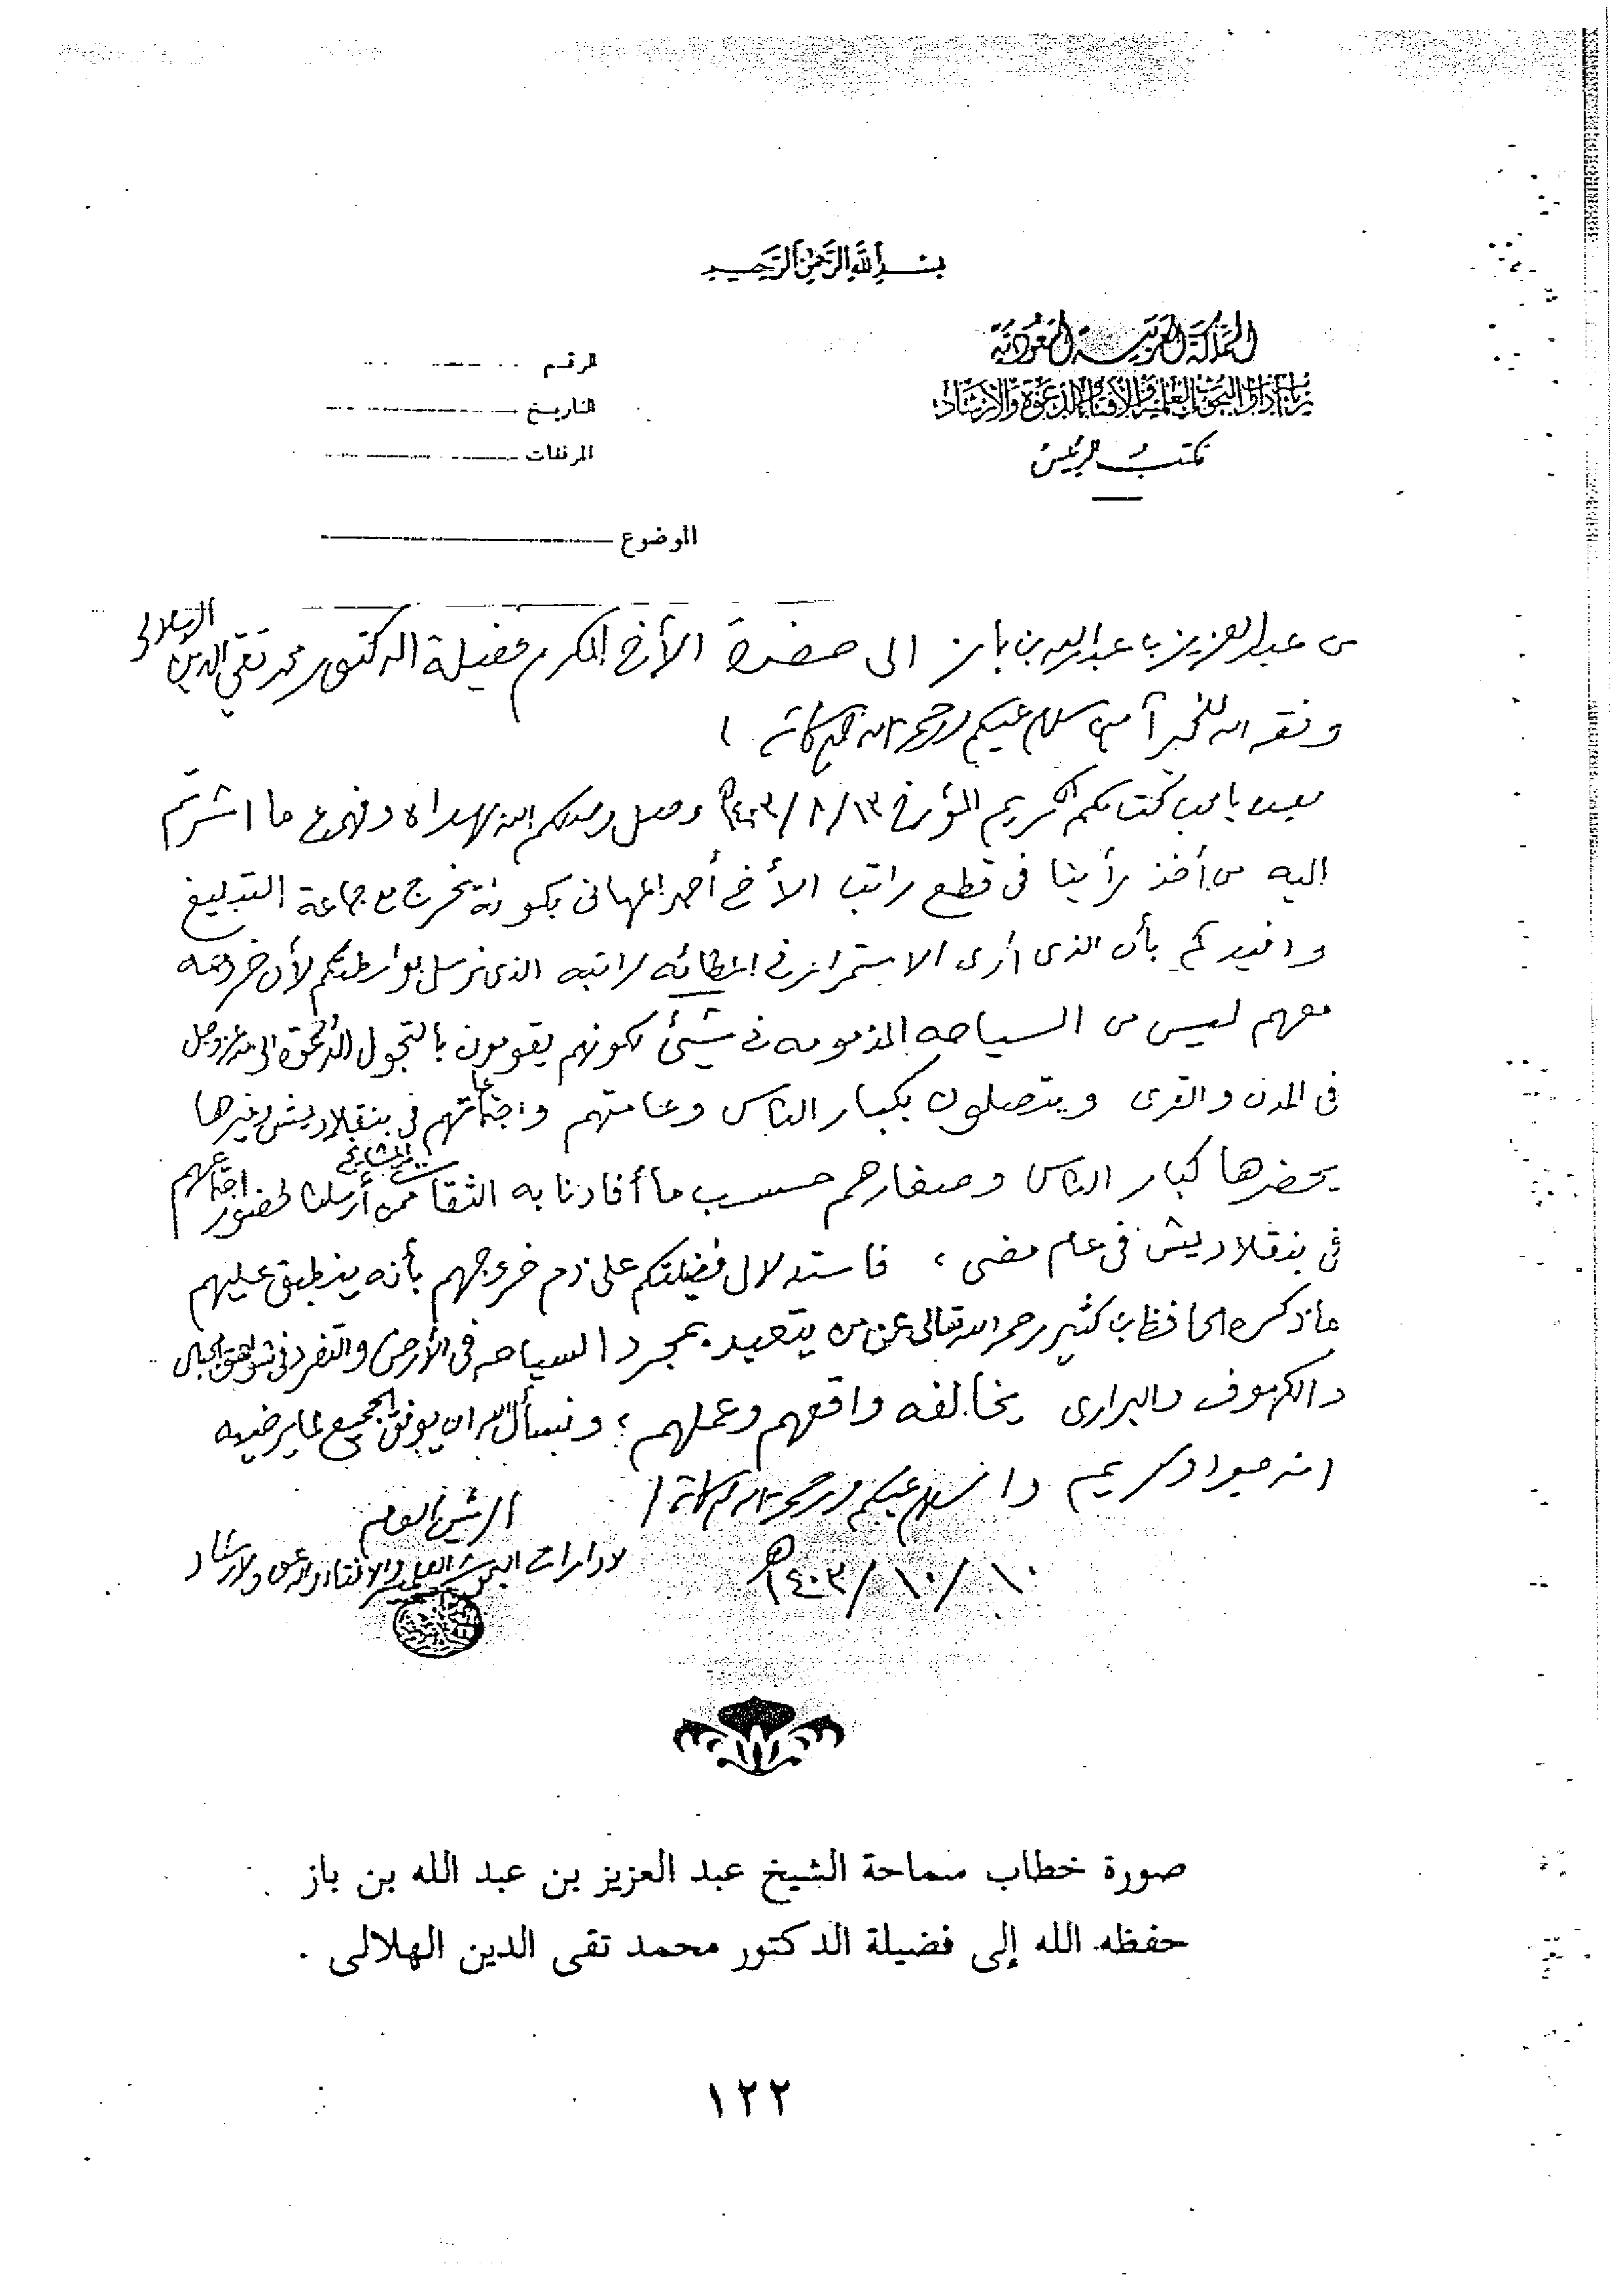 بسم الله الرحمن الرحيم
المملكة العربية السعودية
رئاسة إدارات البحوث العلمية والافتاء والدعوة والارشاد
مكتب الرئيس
الرقم
التاريخ
المرفقات
الموضوع
من عبدالعزيز بن عبدالله بن باز الى حضرة الأخ المكرم فضيلة الدكتور محمد تقي الدين الهلالي
وفقه الله للخير آمين سلام عليكم ورحمة الله وبركاته /
بعده يا محب كتابكم الكريم المؤرخ ١٣/٨/١٤٠٣هـ وصل وصلكم الله بهداه وفهمنا ما اشرتم
اليه من أخذ رأينا في قطع راتب الأخ أحمد المهاني بكونه يخرج مع جماعة التبليغ
وافيدكم بأن الذى أرى الاستمرار في اعطائه راتبه الذى نرسل بواسطتكم لأن خروجه
معهم ليس من السياحه المذمومه في شيئ لكونهم يقومون بالتجول للدعوة الى الله عز وجل
فى المدن والقرى ويتصلون بكبار الناس وعامتهم واجتماعاتهم فى بنقلاديش وغيرها
يحضرها كبار الناس وصغارهم حسب ما أفادنا به الثقات من المشايخ ممن أرسلنا لحضور اجتماعهم
في بنقلاديش فى عام مضى ، فاستدلال فضيلتكم على ذم خروجهم بأنه ينطبق عليهم
ماذكره الحافظ بن كثير رحمه الله تعالى عن من يتعبد بمجرد السياحه فى الأرض والتفرد فى شواهق الجبال
والكهوف والبرارى يخالفه واقعهم وعملهم ؛ ونسأل الله ان يوفق الجميع لما يرضيه
انه جواد كريم والسلام عليكم ورحمة الله وبركاته /
الرئيس العام
لادارات البحوث العلمية والافتاء والدعوة والارشاد
١٠/١٠/١٤٠٣هـ
صورة خطاب سماحة الشيخ عبد العزيز بن عبد الله بن باز
حفظه الله إلى فضيلة الدكتور محمد تقى الدين الهلالى .
١٢٢